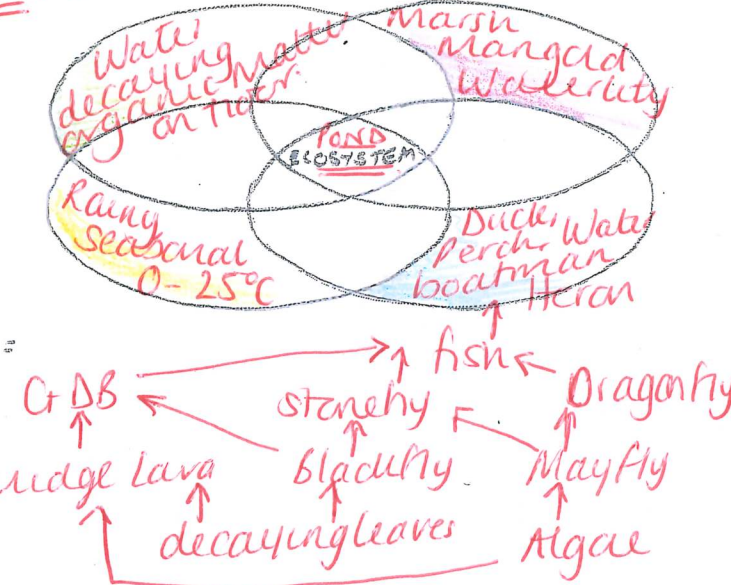 Water
decaying Matter
organic
on floor.
Marsh
Mangold
Waterlily
POND
ECOSTSTEM
Rainy
Seasonal
0-25°C
Duck,
Perch, Water
boatman
Heron
fish
GDB
stonefly
Dragonfly
midge Lava
Blackfly
Mayfly
decaying leaves
Algae